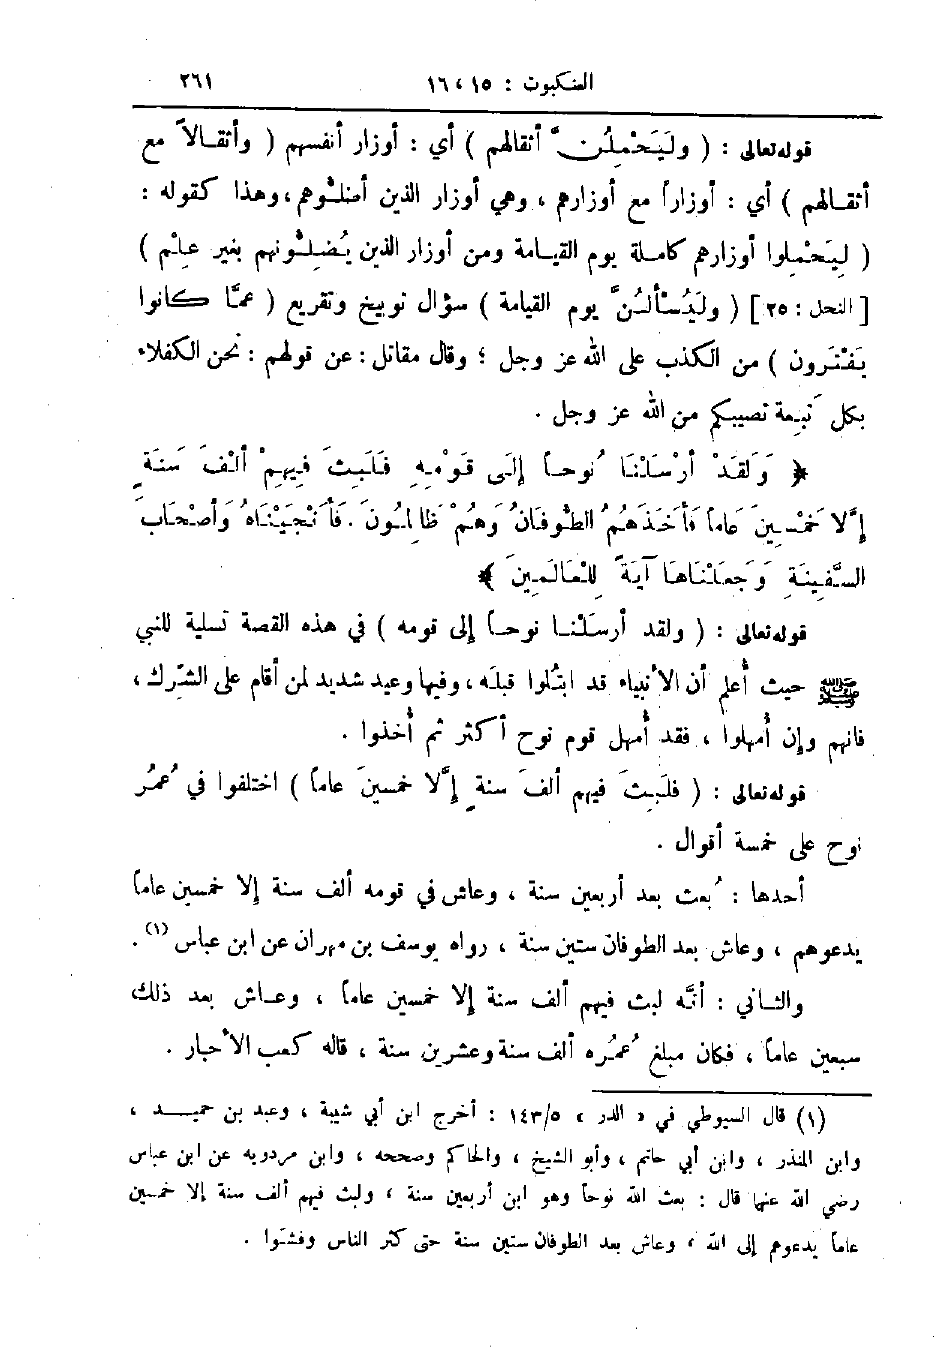 العنكبوت : ١٥ ، ١٦ ٢٦١
قوله تعالى : ( ولَيَحْمِلُنَّ أثقالهم ) أي : أوزار أنفسهم ( وأثقـالاً مع
أثقـالهم ) أي : أوزاراً مع أوزارهم ، وهي أوزار الذين أضلُّوهم ، وهذا كقوله :
( لِيَحْمِلوا أوزارهم كاملة يوم القيـامة ومن أوزار الذين يُضِلـُّونهم بغير عِلْم )
[ النحل : ٢٥ ] ( ولَيُسْألُنَّ يوم القيامة ) سؤال توبيخ وتقريع ( عمَّا كانوا
يَفْتَرون ) من الكذب على الله عز وجل ؛ وقال مقاتل : عن قولهم : نحن الكفلاء
بكل تَبِعة تصيبكم من الله عز وجل .
﴿ وَلَقَدْ أرْسَلْنَا نُوحاً إِلَى قَوْمِهِ فَلَبِثَ فِيهِمْ ألْفَ سَنَةٍ
إِلَّا خَمْسِينَ عَاماً فَأخَذَهُمُ الطُّوفَانُ وَهُمْ ظَالِمُونَ . فَأَنْجَيْنَاهُ وَأصْحَابَ
السَّفِينَةِ وَجَعَلْنَاهَا آيَةً لِلْعَالَمِينَ ﴾
قوله تعالى : ( ولقد أرسَلْنـا نوحـاً إلى قومه ) في هذه القصة تسلية للنبي
ﷺ حيث أُعلم أن الأنبياء قد ابتُلوا قبلَه ، وفيها وعيد شديد لمن أقام على الشِّرك ،
فانهم وإن أُمهلوا ، فقد أُمهل قوم نوح أكثر ثم أُخذوا .
قوله تعالى : ( فلَبِثَ فيهم ألفَ سنة إِلَّا خمسينَ عاماً ) اختلفوا في عُمُر
نوح على خمسة أقوال .
أحدها : بُعث بعد أربعين سنة ، وعاش في قومه ألف سنة إلا خمسين عاماً
يدعوهم ، وعاش بعد الطوفان ستين سنة ، رواه يوسف بن مهران عن ابن عباس (١) .
والثـاني : أنَّه لبث فيهم ألف سنة إلا خمسين عاماً ، وعـاش بعد ذلك
سبعين عاماً ، فكان مبلغ عُمُره ألف سنة وعشرين سنة ، قاله كعب الأحبار .
(١) قال السيوطي في « الدر » ١٤٣/٥ : أخرج ابن أبي شيبة ، وعبد بن حميـــد ،
وابن المنذر ، وابن أبي حاتم ، وأبو الشيخ ، والحاكم وصححه ، وابن مردويه عن ابن عباس
رضي الله عنهما قال : بعث الله نوحاً وهو ابن أربعين سنة ، ولبث فيهم ألف سنة إلا خمسين
عاماً يدعوهم إلى الله ، وعاش بعد الطوفان ستين سنة حتى كثر الناس وفشَوا .